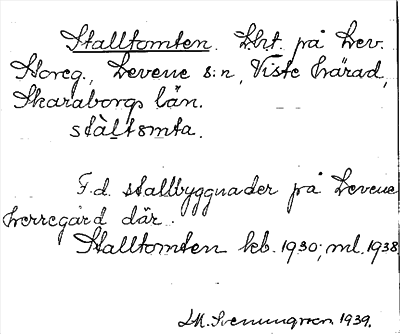 Stalltomten. Lht. på Lev.
Storeg., Levene s:n, Viste härad,
Skaraborgs län.
stàltomta.
F.d. stallbyggnader på Levene
herregård där.
Stalltomten keb. 1930; ml. 1938
1939.